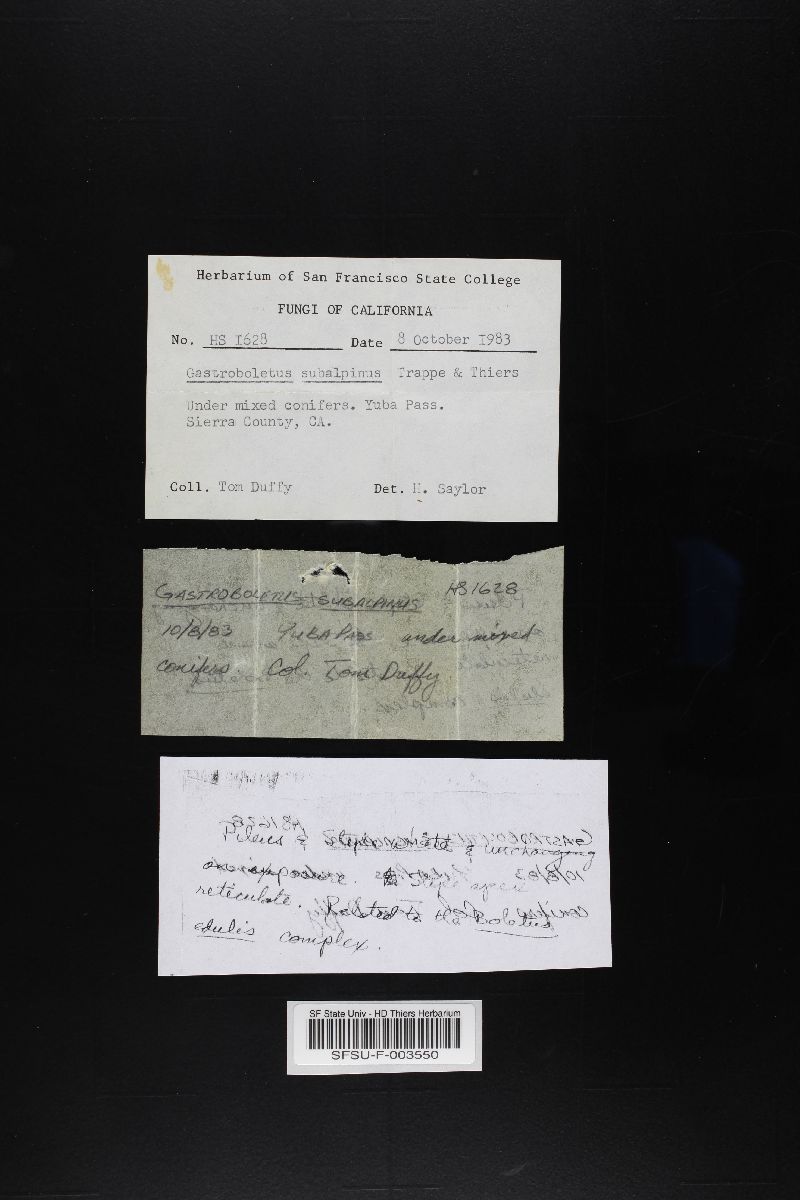 Herbarium of San Francisco State College
FUNGI OF CALIFORNIA
No. HS 1628 Date 8 October 1983
Gastroboletus subalpinus Trappe & Thiers
Under mixed conifers. Yuba Pass.
Sierra County, CA.
Coll. Tom Duffy Det. H. Saylor
GASTROBOLETUS SUBALPINUS HS1628
10/8/83 YUBA PASS under mixed
conifers Col. Tom Duffy
Pileus & & unchanging
on exposure. Stipe apex
reticulate. Related to the Boletus
edulis complex.
SF State Univ - HD Thiers Herbarium
SFSU-F-003550